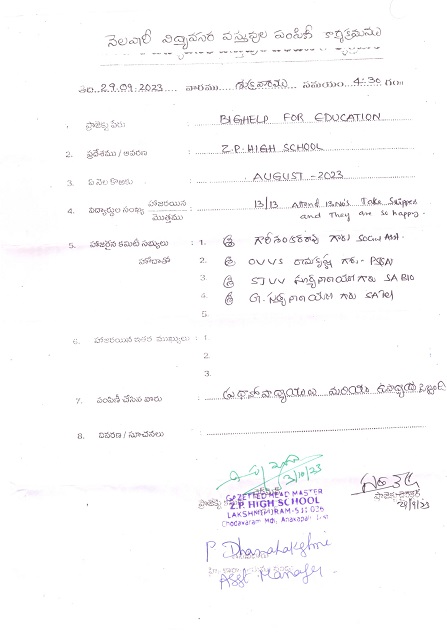 నెలవారీ విద్యావసర వస్తువుల పంపిణీ కార్యక్రమము
తేది. 29.09.2023 వారము శుక్రవారము సమయం 4-30 గం॥
ప్రాజెక్టు పేరు : BIGHELP FOR EDUCATION
2. ప్రదేశము / ఆవరణ : Z.P. HIGH SCHOOL
3. ఏ నెల కొఱకు : AUGUST - 2023
4. విద్యార్థుల సంఖ్య హాజరయిన / మొత్తము : 13/13 Attend Take
and They are so happy.
5. హాజరైన కమిటీ సభ్యులు : 1. శ్రీ గౌరీశంకరరావు గారు Social Asst.
హోదాతో 2. శ్రీ DVVS రామకృష్ణ గారు -
3. శ్రీ STVV సూర్యనారాయణ గారు SA BIO
4. శ్రీ G. సత్యనారాయణ గారు SA Tel
5.
6. హాజరయిన ఇతర ముఖ్యులు : 1.
2.
3.
7. పంపిణీ చేసిన వారు : ప్రధానోపాధ్యాయులు మరియు ఉపాధ్యాయ సిబ్బంది
8. వివరణ / సూచనలు :
3/10/23
GAZETTED HEAD MASTER
Z.P HIGH SCHOOL
LAKSHMIPURAM-531 026
Chodavaram Mdl, Anakapalli Dist
29/9/23
P. Dhanalakshmi
Asst Manager.